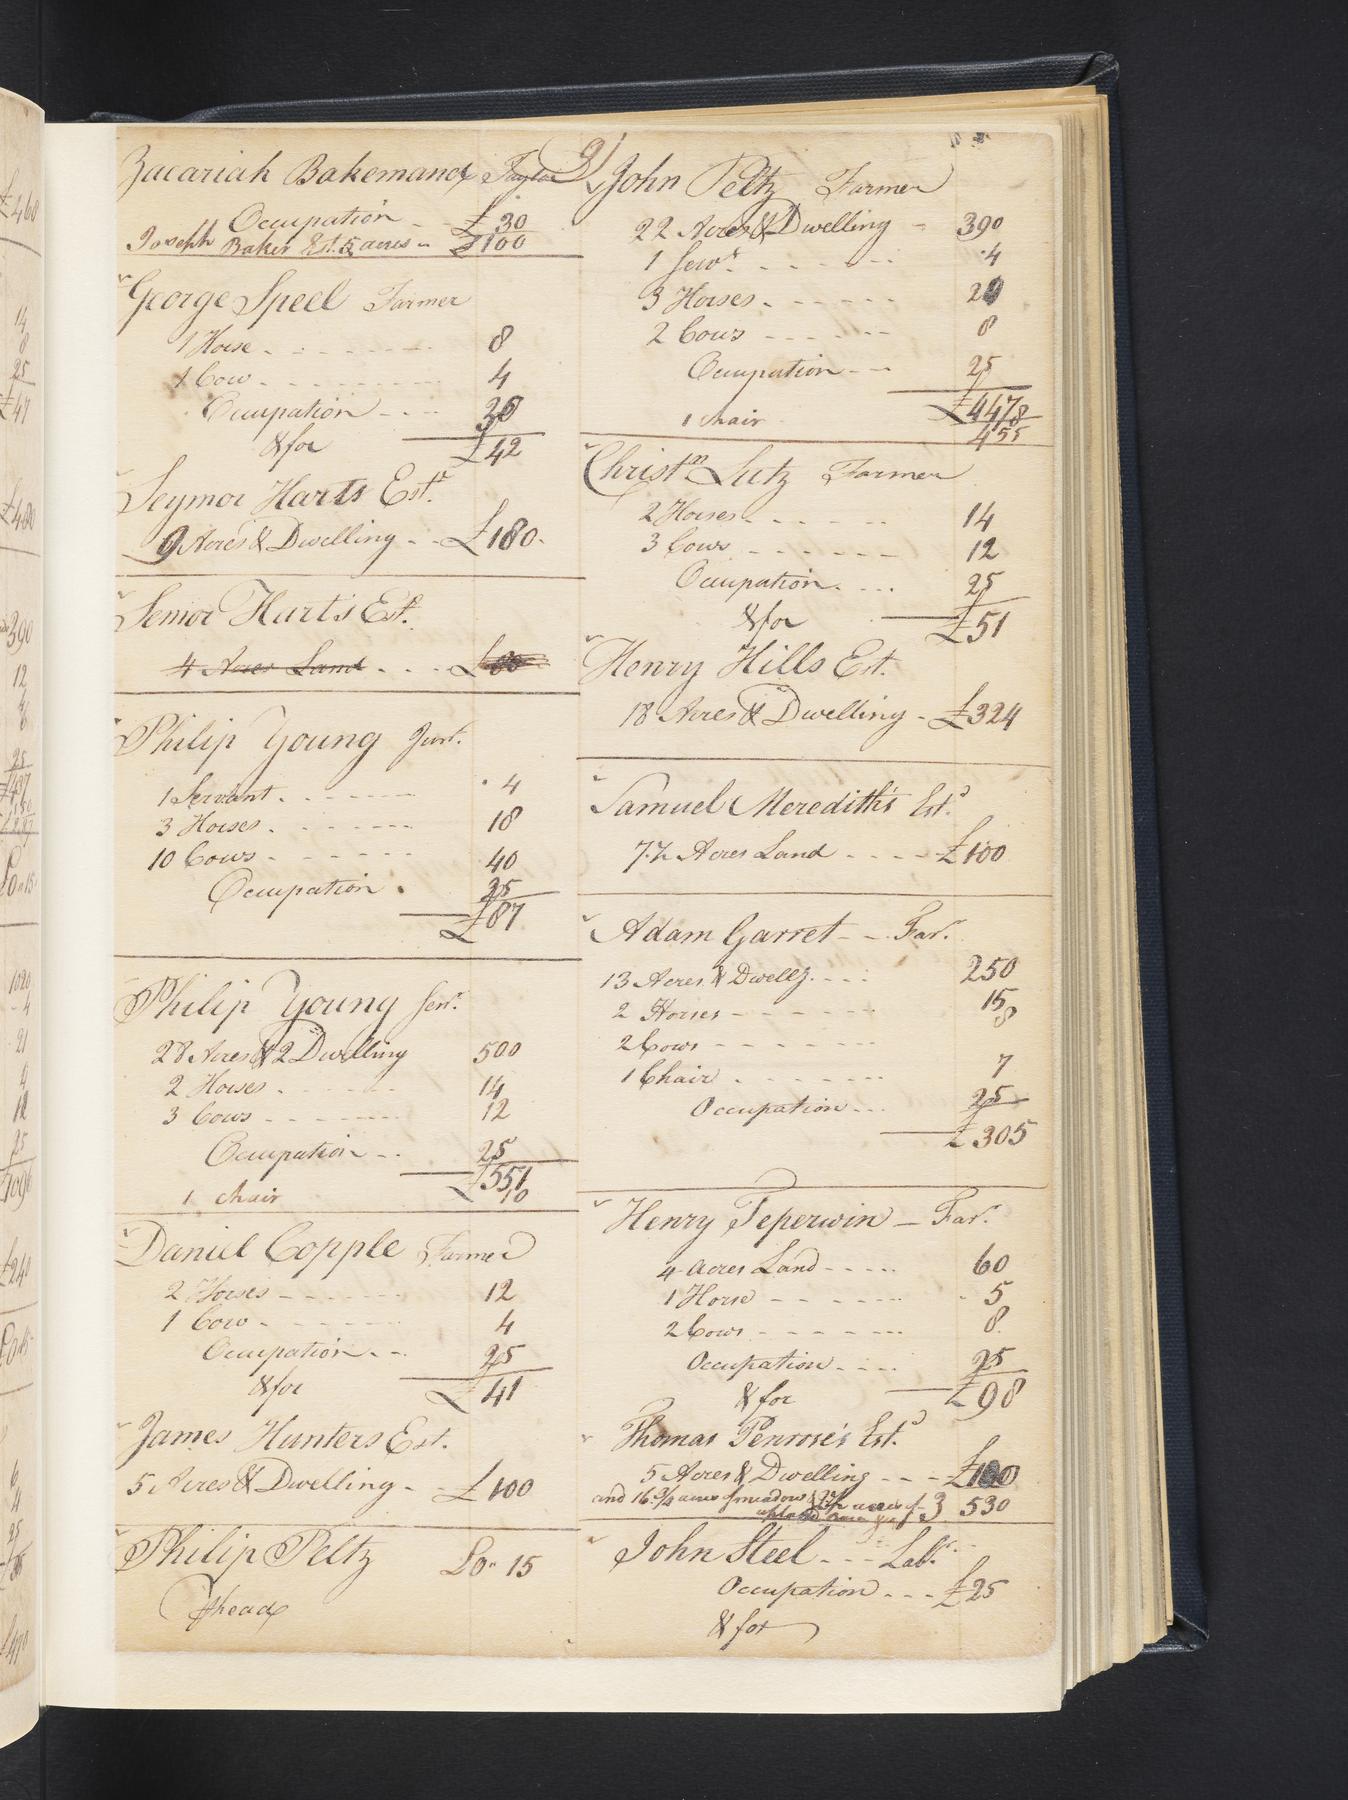 9)
Zacariah Bakemand Taylor
Occupation - £30
Joseph Baker Est. 5 acres - £100
George Speel Farmer
1 Horse - 8
1 Cow - 4
Occupation - 30
& for £42
Seymor Harts Estt.
9 Acres & Dwelling - £180
Semor Hart's Est.
4 Acres Land - £
Philip Young Junr.
1 Servant - 4
3 Horses - 18
10 Cows - 40
Occupation 25
£87
Philip Young Senr.
28 Acres & 2 Dwelling 500
2 Horses - 14
3 Cows - 12
Occupation - 25
£551
1 chair 10
Daniel Copple Farmer
2 Horses - 12
1 Cow - 4
Occupation - 25
& for £41
James Hunters Est.
5 Acres & Dwelling - £100
Philip Peltz £0 " 15
head
John Peltz Farmer
22 Acres & Dwelling - 390
1 Servt. - 4
3 Horses - 20
2 Cows - 8
Occupation - 25
£447
1 chair 8
455
Christn Lutz Farmer
2 Horses - 14
3 Cows - 12
Occupation - 25
& for £51
Henry Hills Est.
18 Acres & Dwelling - £324
Samuel Meredith's Estd
7½ Acres Land - £100
Adam Garret - Far.
13 Acres & Dwellg. - 250
2 Horses - 15
2 Cows - 8
1 Chair - 7
Occupation - 25
£305
Henry Teperwin - Far.
4 acres Land - 60
1 Horse - 5
2 Cows - 8
Occupation - 25
& for £98
Thomas Penrose's Estd
5 Acres & Dwelling - £100
and 16 3/4 acres of meadow & acres of 530
upland
John Steel - Labr.
Occupation - £25
& for